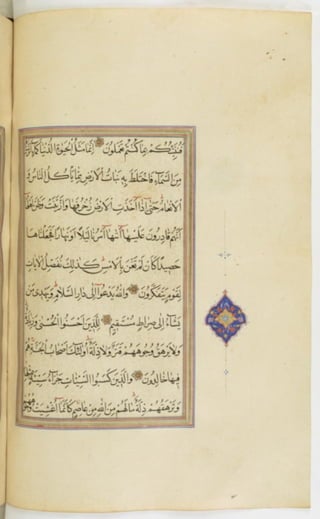 فننبئكم بما كنتم تعملون انما مثل الحيوة الدنيا كماء انزلناه
من السماء فاختلط به نبات الارض مما ياكل الناس و
الانعام حتى اذا اخذت الارض زخرفها وازينت وظن اهلها
انهم قادرون عليها اتيها امرنا ليلا او نهارا فجعلناها
حصيدا كان لم تغن بالامس كذلك نفصل الايات
لقوم يتفكرون والله يدعوا الى دار السلام ويهدي من
يشاء الى صراط مستقيم للذين احسنوا الحسنى وزيادة
ولا يرهق وجوههم قتر ولا ذلة اولئك اصحاب الجنة هم
فيها خالدون والذين كسبوا السيئات جزاء سيئة بمثلها
وترهقهم ذلة ما لهم من الله من عاصم كانما اغشيت وجوههم